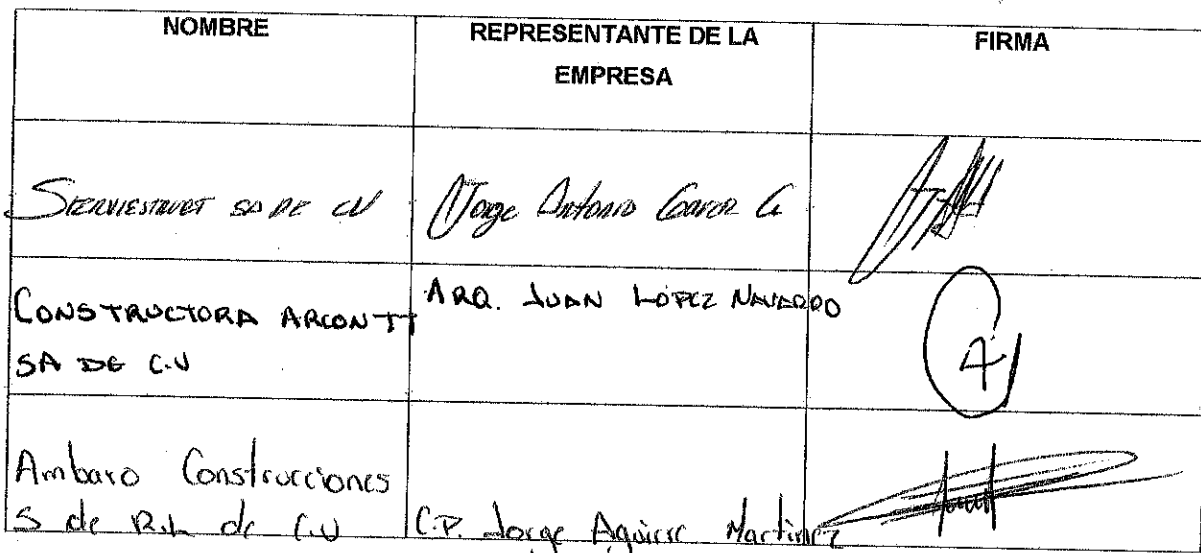 NOMBRE
REPRESENTANTE DE LA
EMPRESA
FIRMA
SA DE CV
Jorge Antonio G
CONSTRUCTORA ARCONTI
SA DE C.V
ARQ. JUAN LÓPEZ NAVARRO
Ambaro Construcciones
S de R.L de C.V
C.P. Jorge Aguirre Martinez